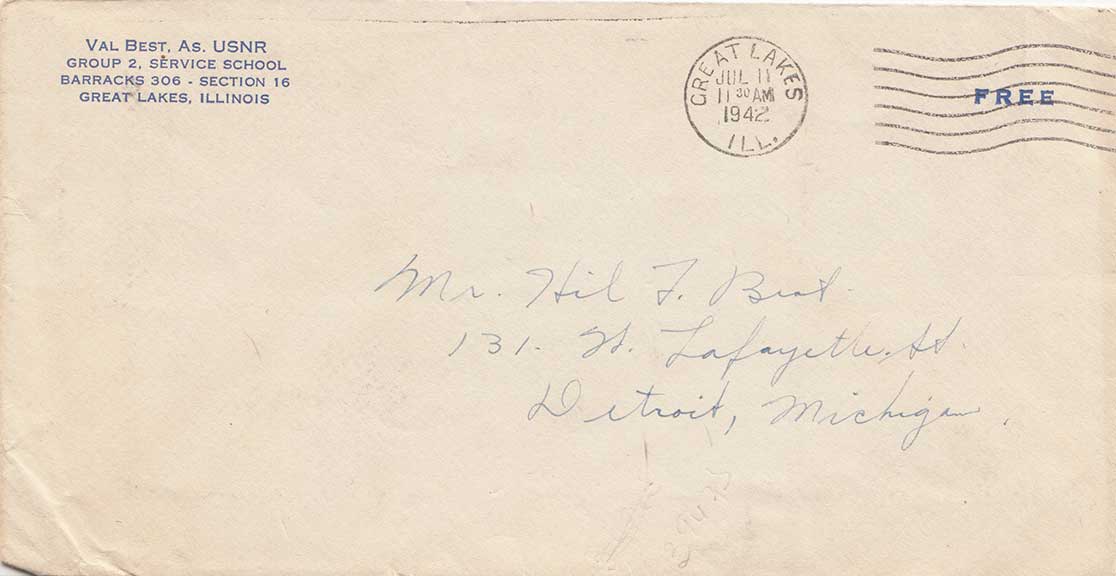 VAL BEST, AS. USNR
GROUP 2, SERVICE SCHOOL
BARRACKS 306 - SECTION 16
GREAT LAKES, ILLINOIS
GREAT LAKES
JUL 11
11 30 AM
1942
ILL.
FREE
Mr. Hil F. Best.
131. W. Lafayette. St.
Detroit, Michigan.